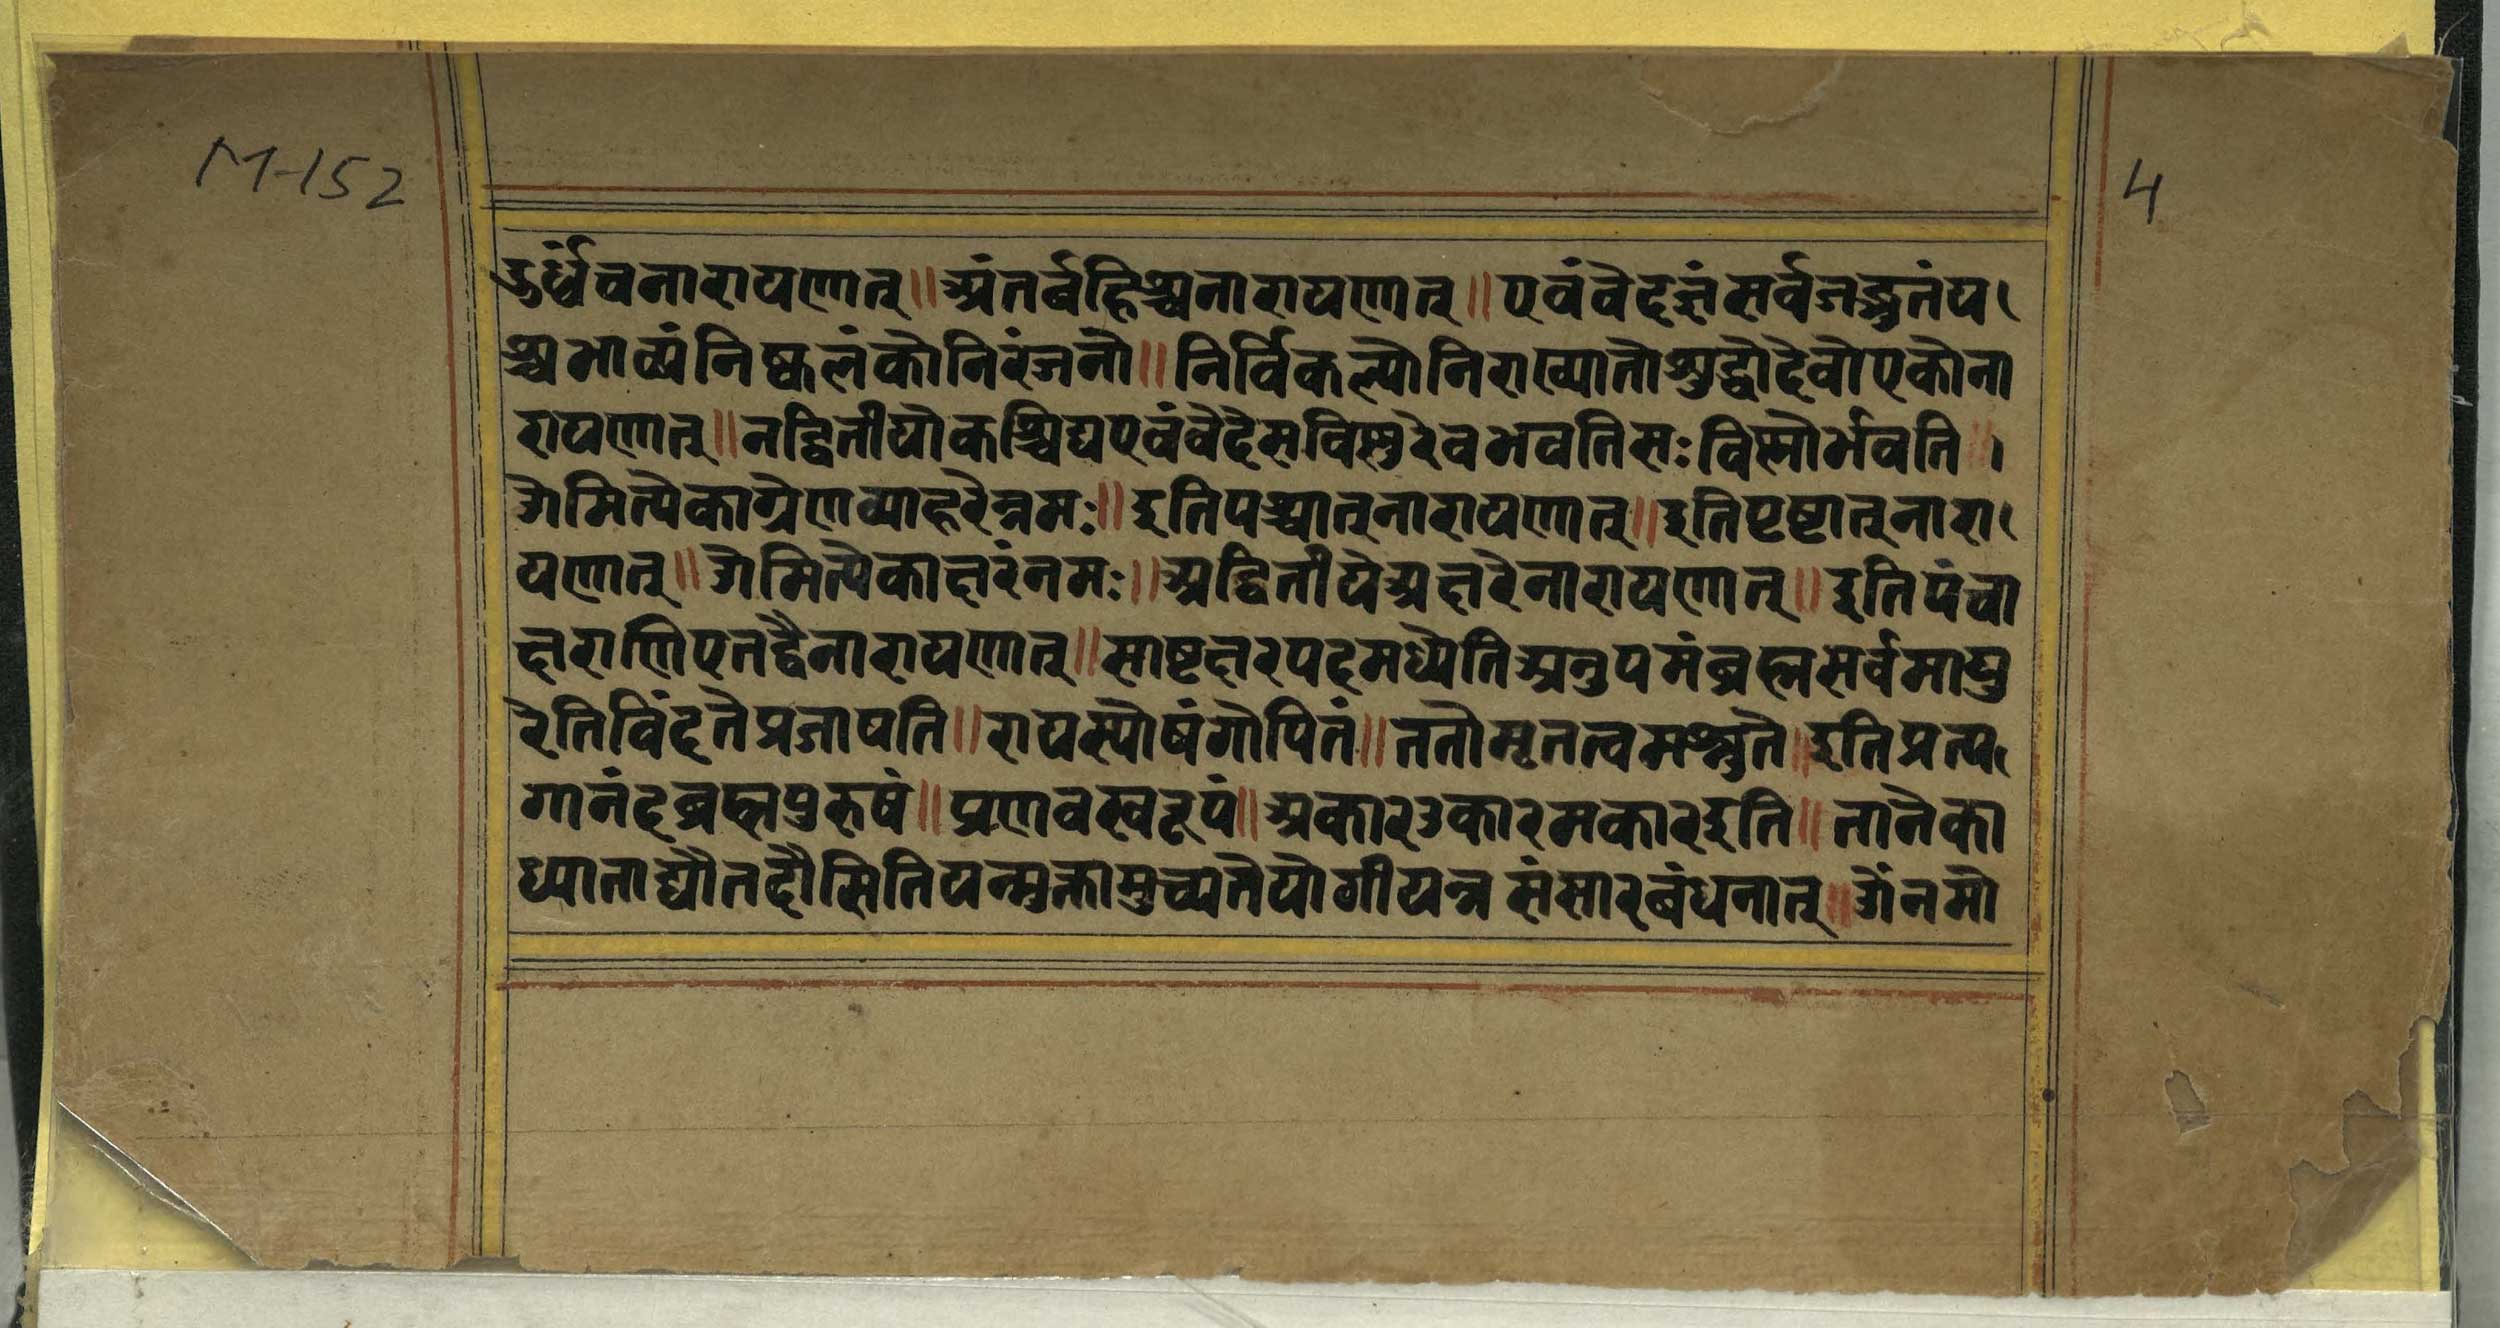 M-152
4
ऊर्ध्वंचनारायणात्॥अंतर्बहिश्चनारायणात्॥एवंवेदजंसर्वजद्भुतंय
श्चभाव्यंनिष्कलंकोनिरंजनो॥निर्विकल्पोनिराख्यातोशुद्धोदेवोएकोना
रायणात्॥नद्वितीयोकश्चिद्यएवंवेदेसविष्णुरेवभवतिसःविष्णोर्भवति।
ओमित्येकाग्रेणव्याहरेन्नमः॥इतिपश्चात्नारायणात्॥इतिपृष्टात्नारा
यणात्॥ओमित्येकाक्षरंनमः॥अद्वितीयेअक्षरेनारायणात्॥इतिपंचा
क्षराणिएतद्वैनारायणात्॥साष्टक्षरपदमध्येतिअनुपमंब्रह्मसर्वमायु
रेतिविंदतेप्रजापति॥रायस्पोषंगोपितं॥ततोमृतत्वमश्नुते॥इतिप्रत्य
गानंदब्रह्मपुरुषं॥प्रणवस्वरूपं॥अकारउकारमकारइति॥तानेका
ध्याताद्यौतदौसितियन्मुक्तामुच्यतेयोगीयन्न संसारबंधनात्॥ओंनमो